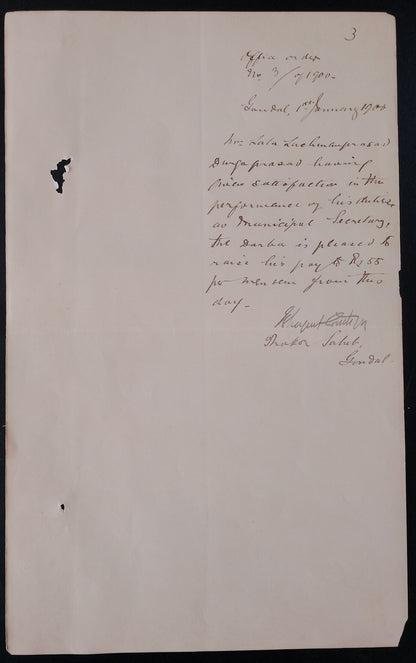 3
Office order
No. 3/of 1900-
Gondal, 1st January 1900
Mr. Lala Lachmanprasad
Durgaprasad having
given satisfaction in the
performance of his duties
as Municipal Secretary,
the Darbar is pleased to
raise his pay to Rs 55
per mensem from this
day-
Thakor Saheb,
Gondal